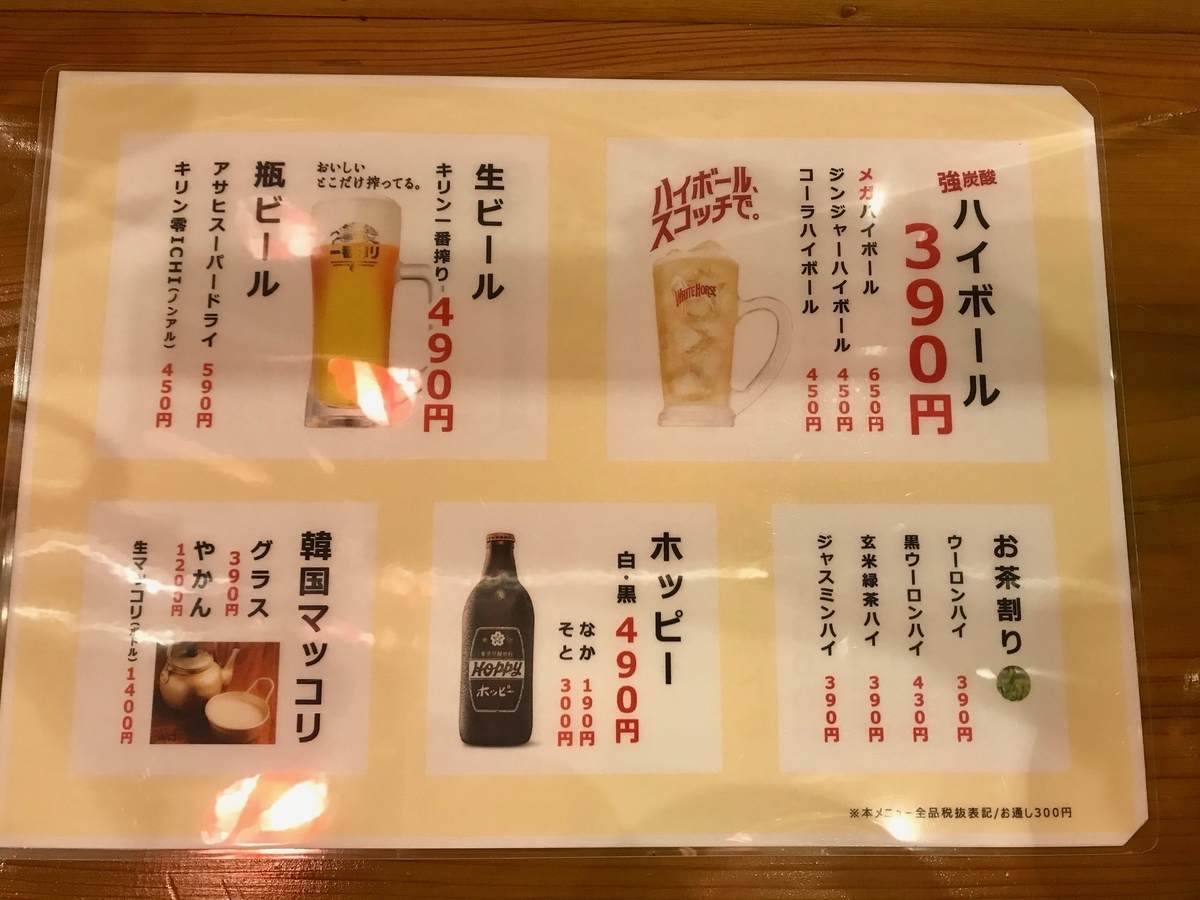 強炭酸
ハイボール
390円
メガハイボール 650円
ジンジャーハイボール 450円
コーラハイボール 450円
ハイボール、
スコッチで。
WHITE HORSE
生ビール
キリン一番搾り 490円
おいしい
とこだけ搾ってる。
一番搾り
瓶ビール
アサヒスーパードライ 590円
キリン零ICHI(ノンアル) 450円
お茶割り
ウーロンハイ 390円
黒ウーロンハイ 430円
玄米緑茶ハイ 390円
ジャスミンハイ 390円
ホッピー
白・黒 490円
なか 190円
そと 300円
HOPPY
ホッピー
韓国マッコリ
グラス
390円
やかん
1200円
生マッコリ(ボトル) 1400円
※本メニュー全品税抜表記/お通し300円